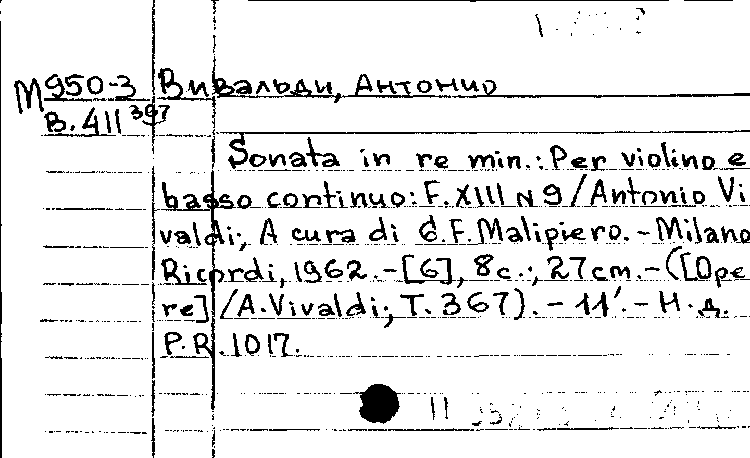 М950-3 Вивальди, Антонио
В.411 397
Sonata in re min.: Per violino e
basso continuo: F.XIII N 9 / Antonio Vi
valdi; A cura di G.F. Malipiero. - Milano
Ricordi, 1962. - [6], 8 c.; 27 cm. - ([Ope
re] / A. Vivaldi; T. 367). - 11'. - Н.д.
P.R. 1017.